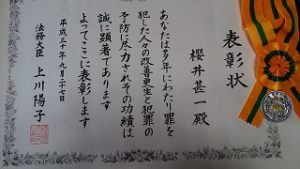 表彰状
櫻井甚一殿
あなたは多年にわたり罪を
犯した人々の改善更生と犯罪の
予防に尽力されその功績は
誠に顕著であります
よってここに表彰します
平成三十年九月二十七日
法務大臣 上川陽子